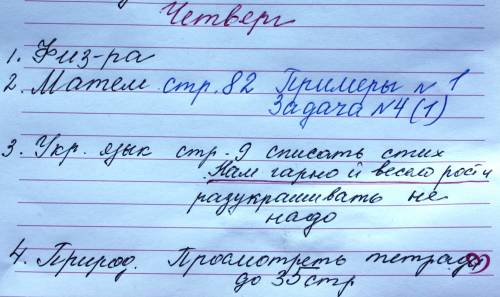 Четверг
1. Физ-ра
2. Матем стр. 82 Примеры № 1
Задача №4 (1)
3. Укр. язык стр. 9 списать стих
Нам гарно й весело рости
разукрашивать не
надо
4. Природ. Просмотреть тетради
до 35 стр